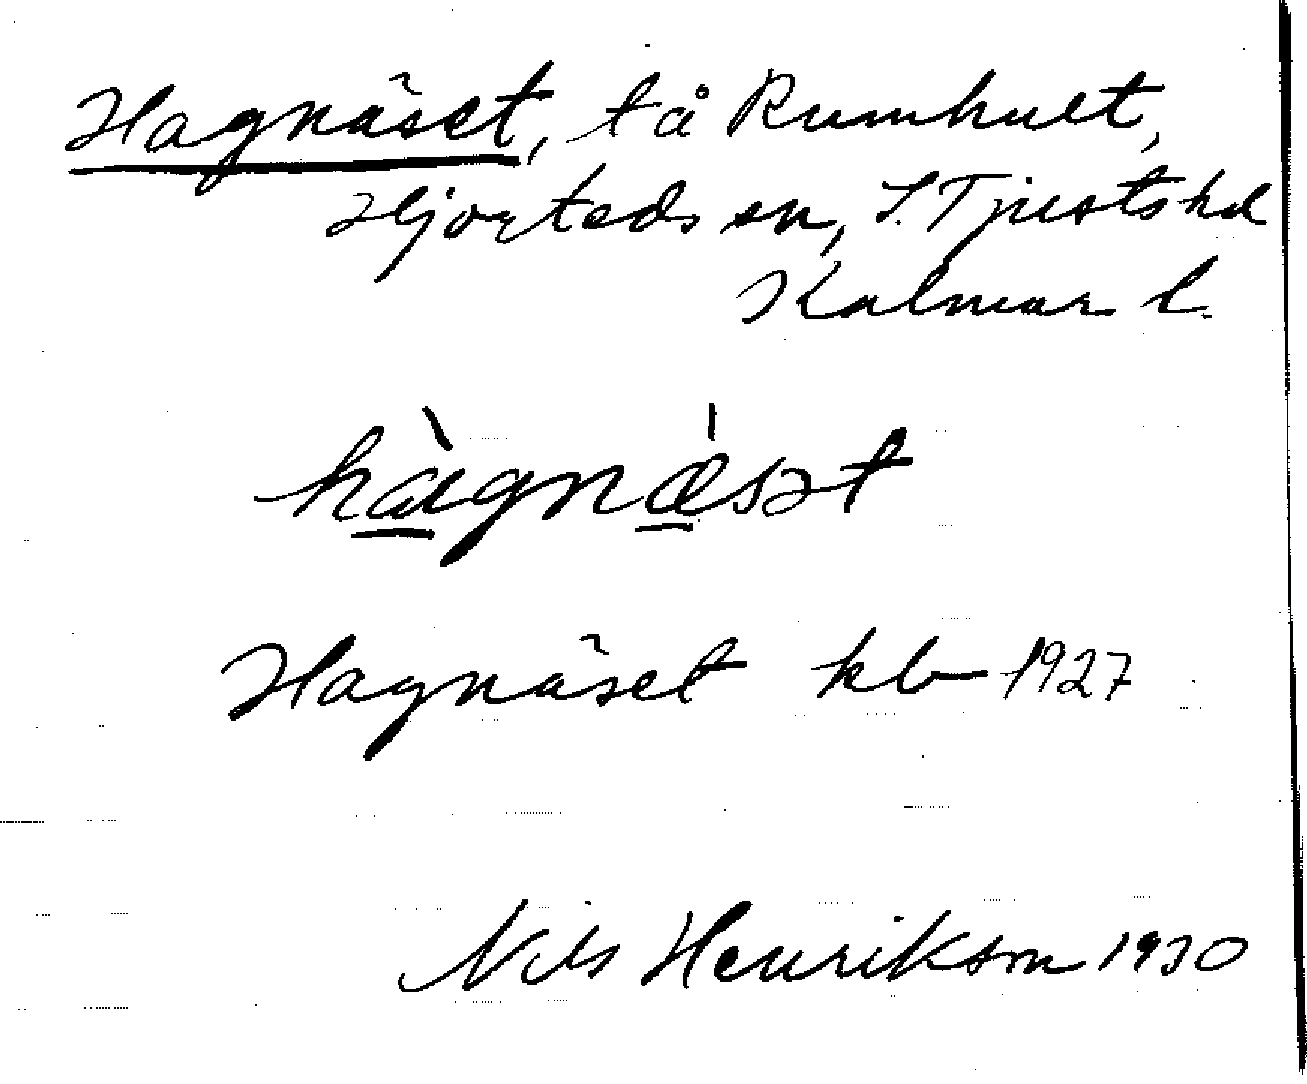 Hagnäset, tå Rumhult,
Hjorteds sn, S. Tjusts hd
Kalmar l.
hàgnæ̍sət
Hagnäset kb 1927
Nils Henrikson 1930